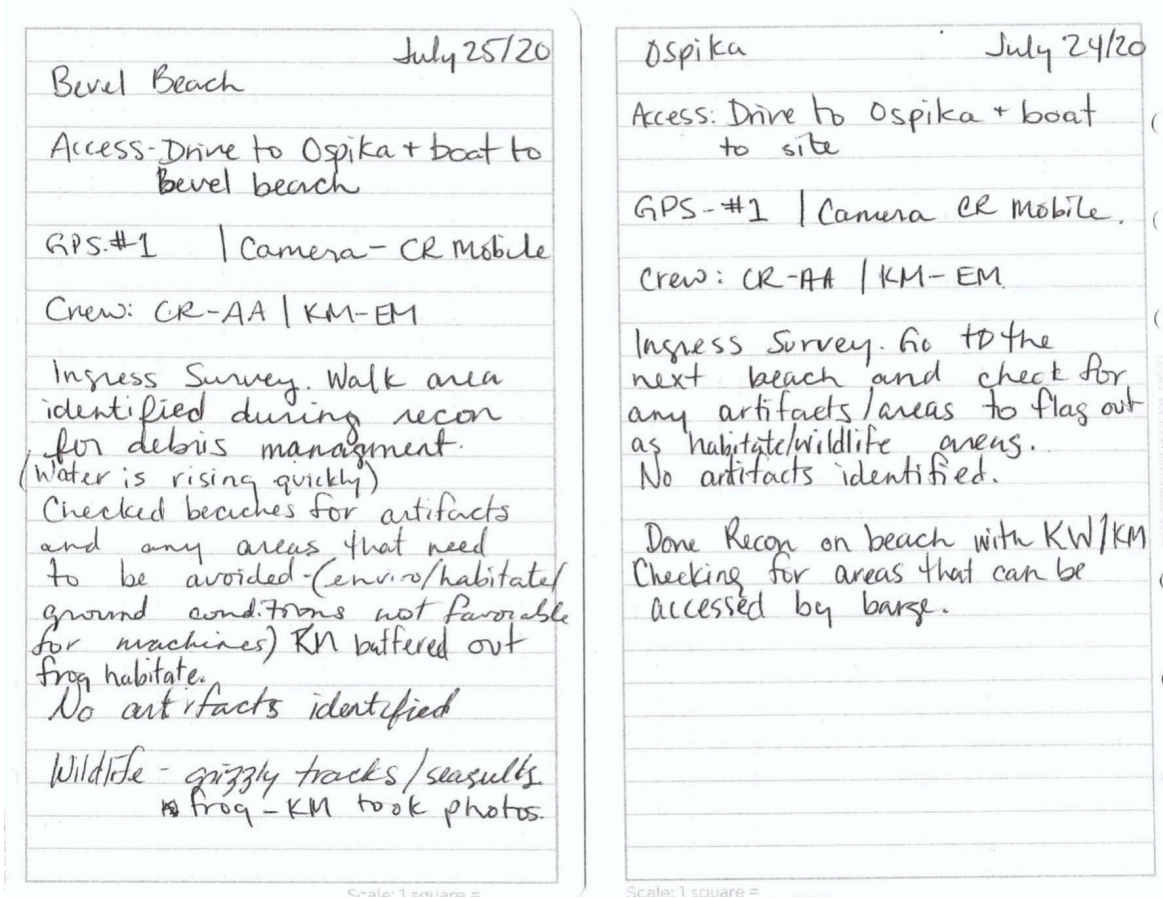 July 25/20
Bevel Beach
Access-Drive to Ospika + boat to
Bevel beach
GPS.#1 | Camera - CR Mobile
Crew: CR-AA | KM-EM
Ingress Survey. Walk area
identified during recon
for debris managment.
(Water is rising quickly)
Checked beaches for artifacts
and any areas that need
to be avoided-(enviro/habitate/
ground conditions not favorable
for machines) KM buffered out
frog habitate.
No artifacts identified
Wildlife - grizzly tracks/seagulls.
frog - KM took photos.
Scale: 1 square =
Ospika July 24/20
Access: Drive to Ospika + boat
to site
GPS-#1 | Camera CR Mobile.
Crew: CR-AA | KM-EM.
Ingress Survey. Go to the
next beach and check for
any artifacts/areas to flag out
as habitate/wildlife areas.
No artifacts identified.
Done Recon on beach with KW/KM
Checking for areas that can be
accessed by barge.
Scale: 1 square =